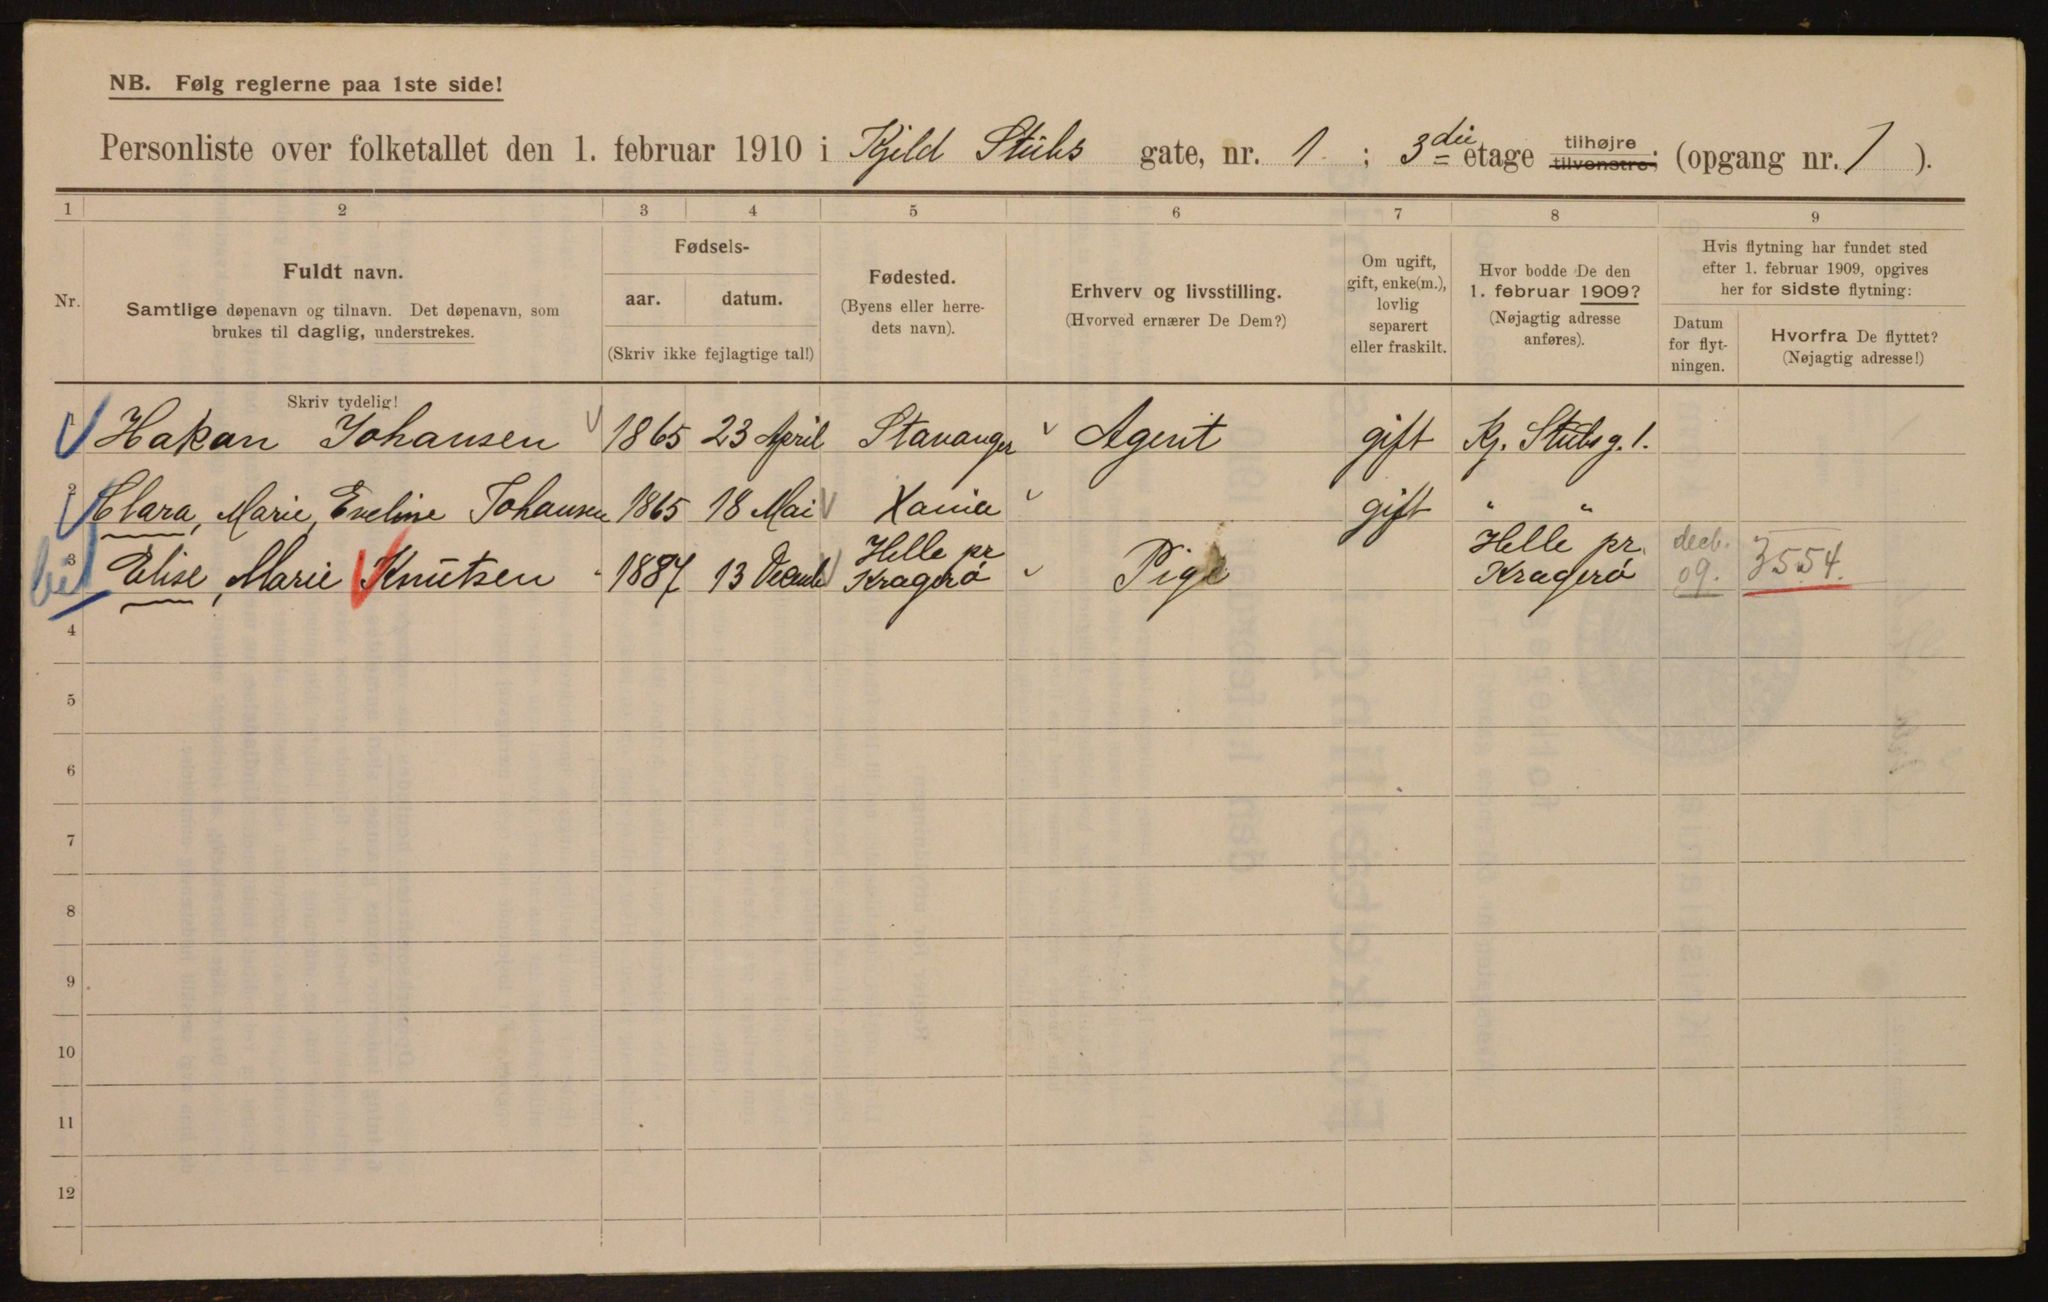 NB. Følg reglerne paa 1ste side!
Personliste over folketallet den 1. februar 1910 i Kjeld Stubs gate, nr. 1 ; 3die etage tilhøjre tilvenstre, (opgang nr. 1 ).
1 2 3 4 5 6 7 8 9
Nr.
Fuldt navn.
Samtlige døpenavn og tilnavn. Det døpenavn, som
brukes til daglig, understrekes.
Skriv tydelig!
Fødsels-
aar. datum.
(Skriv ikke fejlagtige tal!)
Fødested.
(Byens eller herre-
dets navn).
Erhverv og livsstilling.
(Hvorved ernærer De Dem?)
Om ugift,
gift, enke(m.),
lovlig
separert
eller fraskilt.
Hvor bodde De den
1. februar 1909?
(Nøjagtig adresse
anføres).
Hvis flytning har fundet sted
efter 1. februar 1909, opgives
her for sidste flytning:
Datum
for flyt-
ningen.
Hvorfra De flyttet?
(Nøjagtig adresse!)
1 Hakon Johansen 1865 23 April Stavanger Agent gift Kj. Stubsg. 1.
2 Clara, Marie, Eveline Johansen 1865 18 Mai Xania gift " "
3 Elise, Marie Knutsen 1887 13 Decemb Helle pr Kragerø Pige Helle pr. Kragerø decb. 09. 3554.
4
5
6
7
8
9
10
11
12